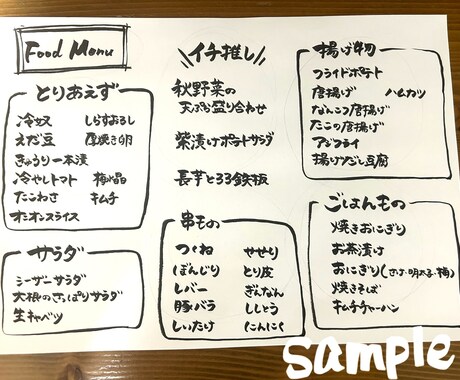 Food Menu
とりあえず
冷奴 しらすおろし
えだ豆 厚焼き卵
きゅうり一本漬
冷やしトマト 梅水晶
たこわさ キムチ
オニオンスライス
サラダ
シーザーサラダ
大根のさっぱりサラダ
生キャベツ
イチ推し
秋野菜の
天ぷら盛り合わせ
紫漬けポテトサラダ
長芋とろろ鉄板
串もの
つくね せせり
ぼんじり とり皮
レバー ぎんなん
豚バラ ししとう
しいたけ にんにく
揚げ物
フライドポテト
唐揚げ ハムカツ
なんこつ唐揚げ
たこの唐揚げ
アジフライ
揚げだし豆腐
ごはんもの
焼きおにぎり
お茶漬け
おにぎり(さけ・明太子・梅)
焼きそば
キムチチャーハン
sample